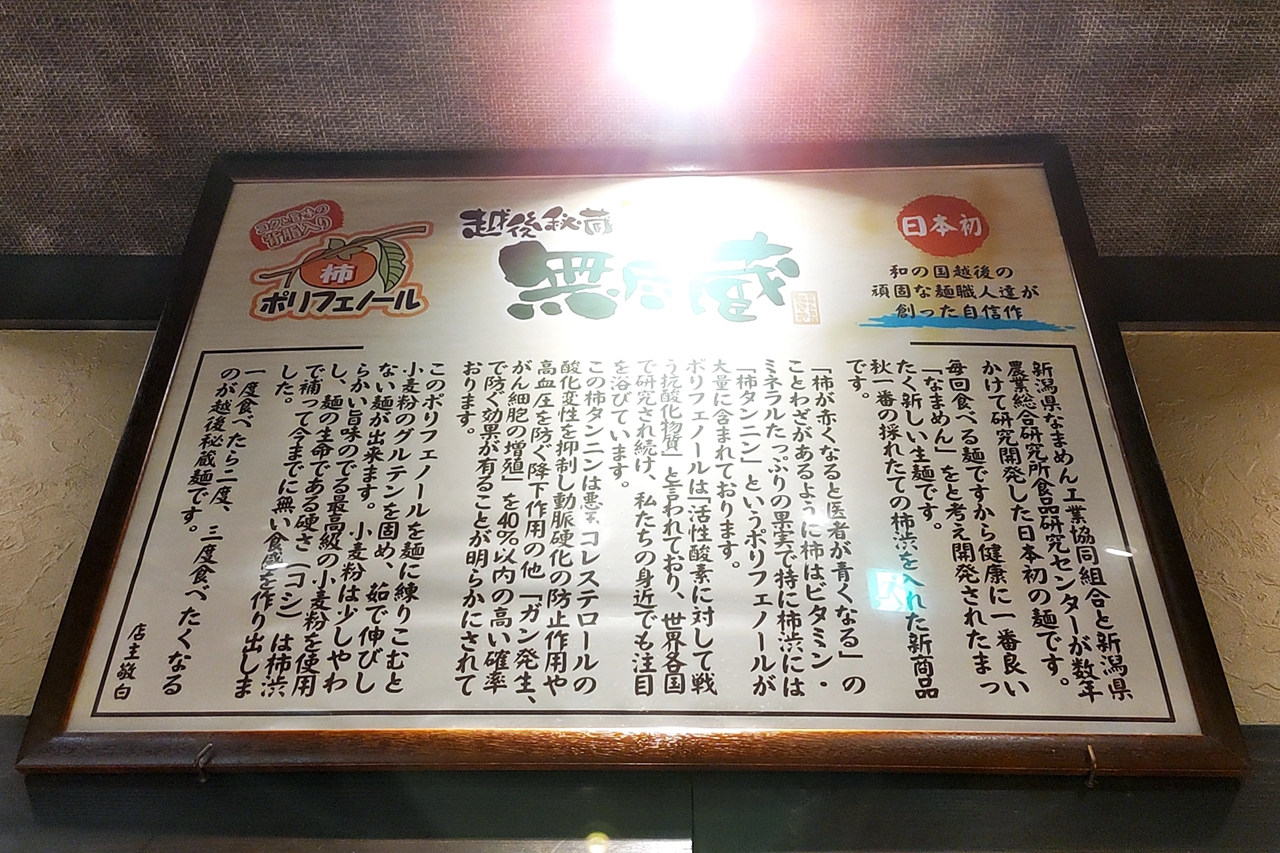 日本初
和の国越後の
頑固な麺職人達が
創った自信作
越後秘蔵
無尽蔵
柿
ポリフェノール
新潟県なまめん工業協同組合と新潟県
農業総合研究所食品研究センターが数年
かけて研究開発した日本初の麺です。
毎回食べる麺ですから健康に一番良い
「なまめん」をと考え開発されたまっ
たく新しい生麺です。
秋一番の採れたての柿渋を入れた新商品
です。
「柿が赤くなると医者が青くなる」の
ことわざがあるように柿はビタミン・
ミネラルたっぷりの果実で特に柿渋には
「柿タンニン」というポリフェノールが
大量に含まれております。
ポリフェノールは「活性酸素に対して戦
う抗酸化物質」と言われており、世界各国
で研究され続け、私たちの身近でも注目
を浴びています。
この柿タンニンは悪玉コレステロールの
酸化変性を抑制し動脈硬化の防止作用や
高血圧を防ぐ降下作用の他「ガン発生、
がん細胞の増殖」を40%以内の高い確率
で防ぐ効果が有ることが明らかにされて
おります。
このポリフェノールを麺に練りこむと
小麦粉のグルテンを固め、茹で伸びし
ない麺が出来ます。小麦粉は少しやわ
らかい旨味のでる最高級の小麦粉を使用
し、麺の生命である硬さ（コシ）は柿渋
で補って今までに無い食感を作り出しま
した。
一度食べたら二度、三度食べたくなる
のが越後秘蔵麺です。
店主敬白